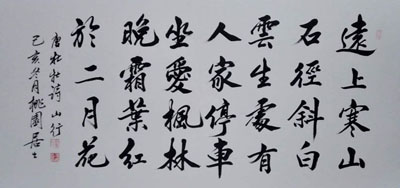 遠上寒山
石徑斜白
雲生處有
人家停車
坐愛楓林
晚霜葉紅
於二月花
唐杜牧詩山行
己亥冬月桃園居